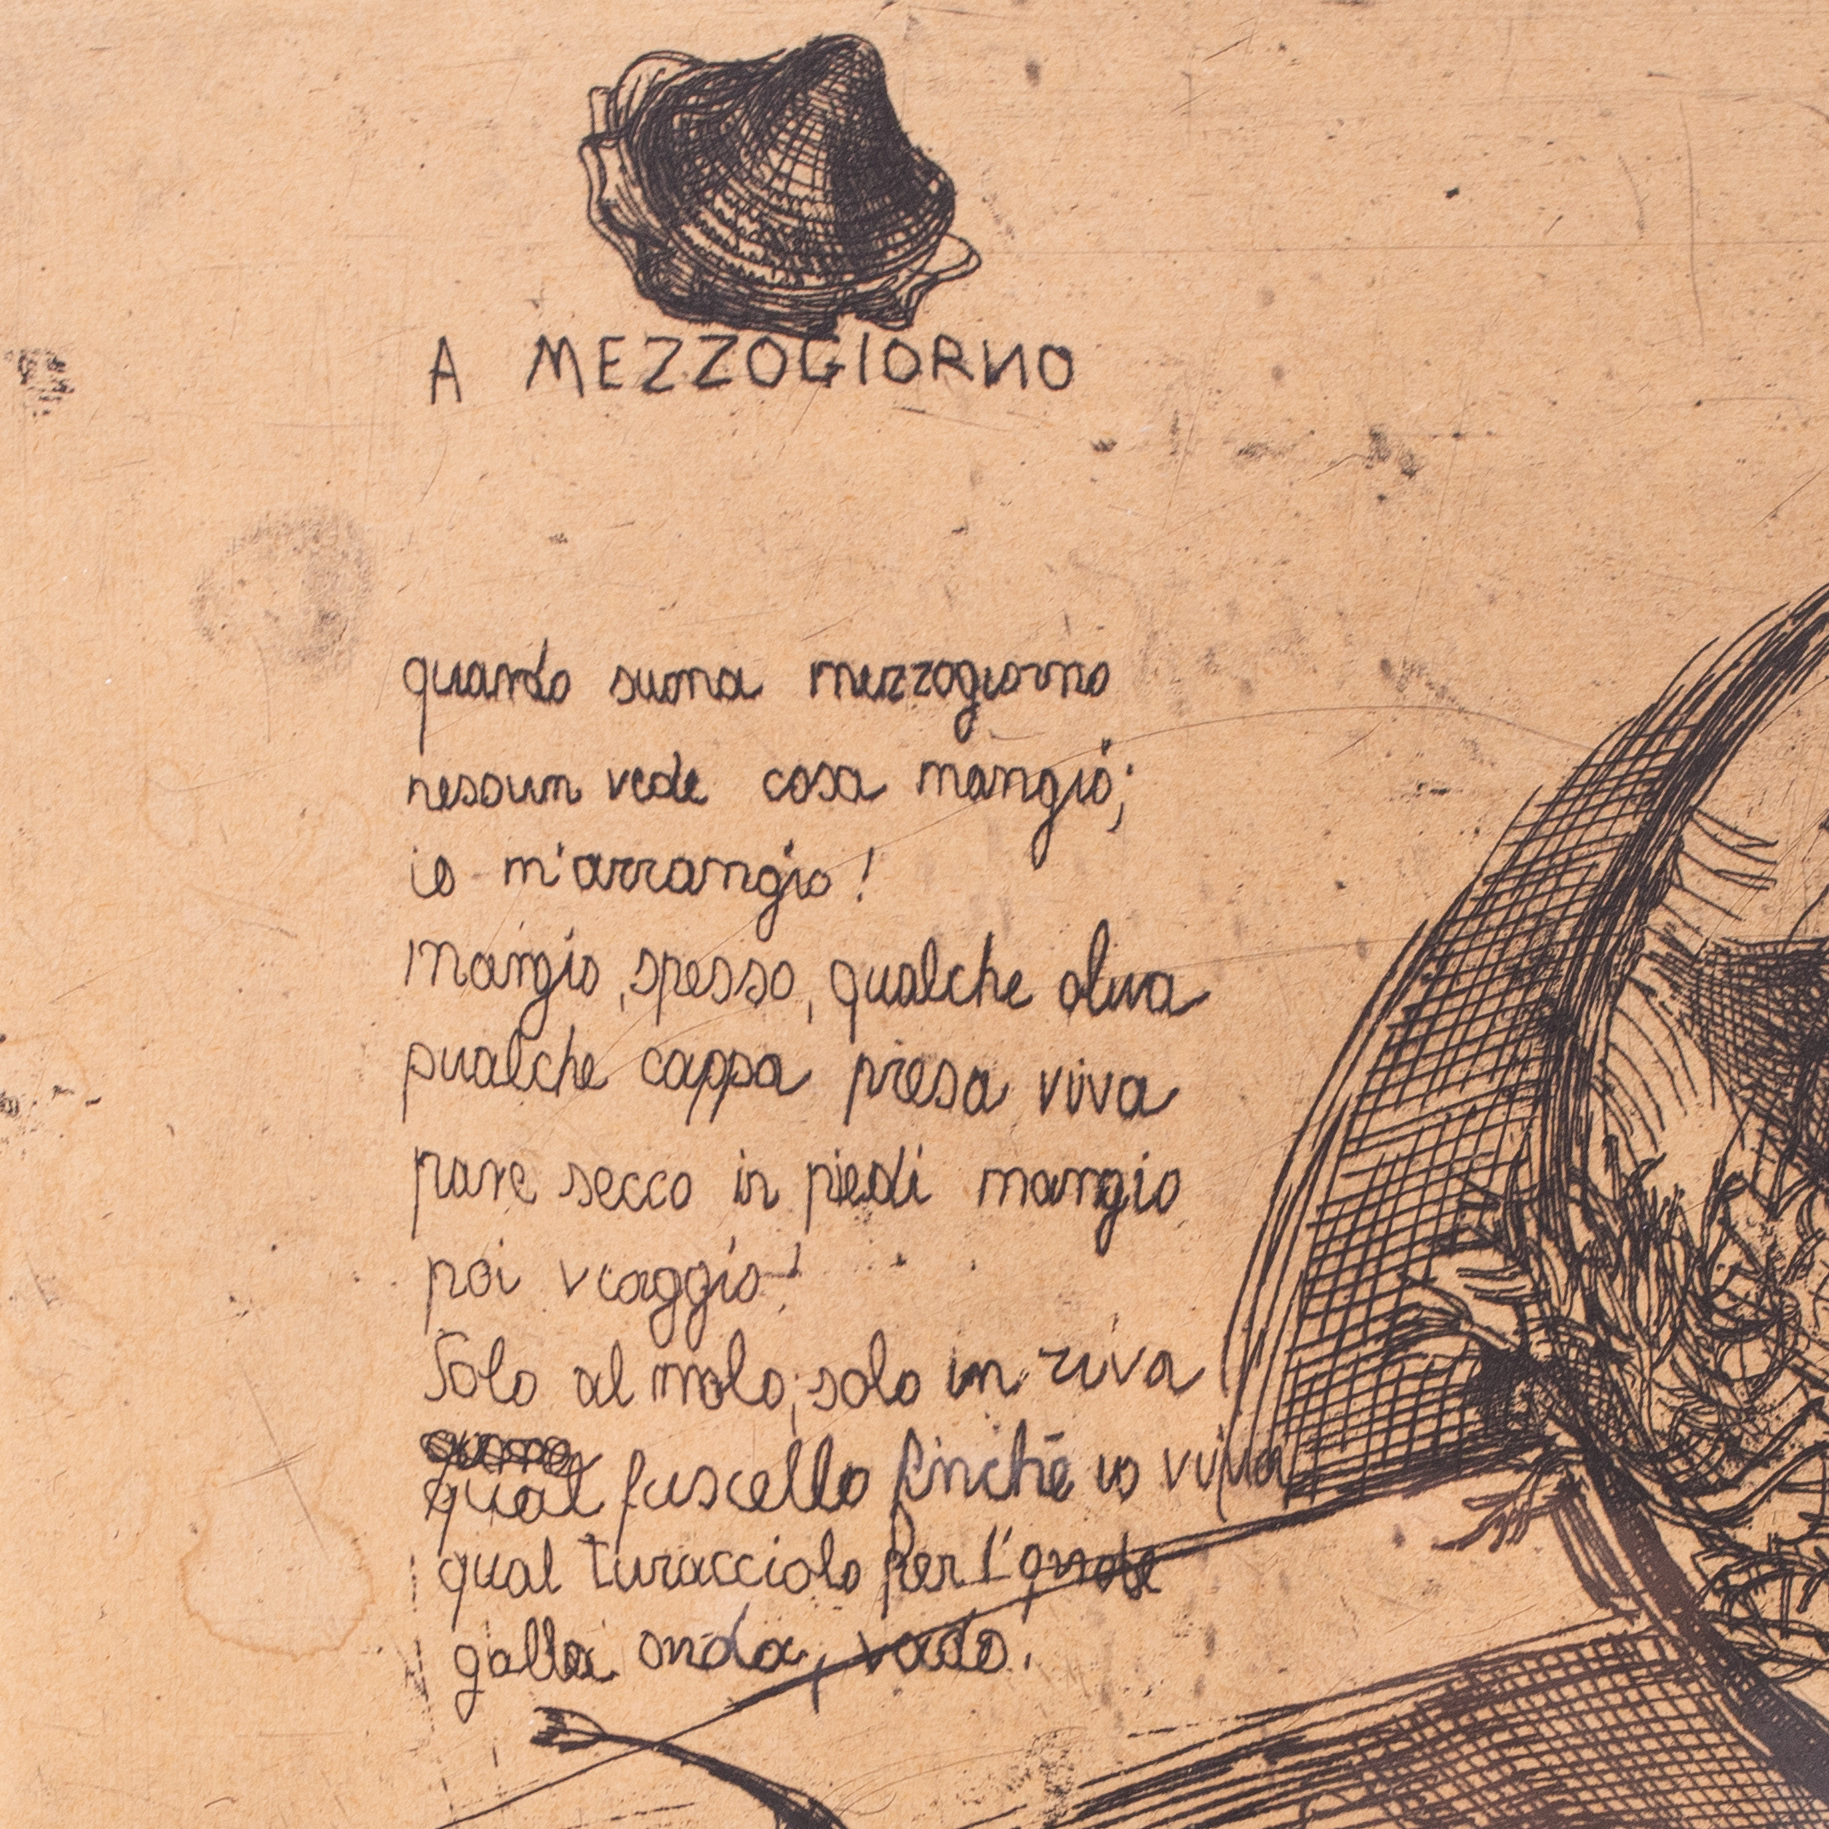 A MEZZOGIORNO
quando suona mezzogiorno
nessun vede cosa mangio;
io m'arrangio!
Mangio, spesso, qualche oliva
qualche cappa presa viva
pane secco in piedi mangio
poi viaggio!
Solo al molo, solo in riva
qual fuscello finchè io viva,
qual turacciolo per l'onde
galla onda, vado!